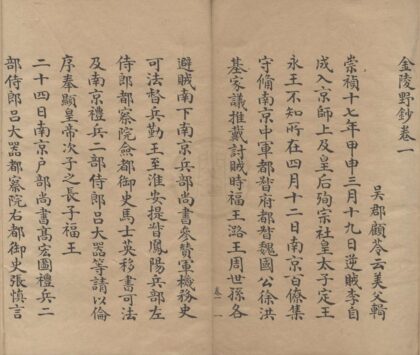 金陵野鈔卷一
吳郡顧苓云美父輯
崇禎十七年甲申三月十九日逆賊李自
成入京師上及皇后殉宗社皇太子定王
永王不知所在四月十二日南京百僚集
守備南京中軍都督府都督魏國公徐洪
基家議推戴討賊時福王潞王周世孫各
卷一
避賊南下南京兵部尚書叅贊軍機務史
可法督兵勤王至淮安提督鳳陽兵部左
侍郎都察院僉都御史馬士英移書可法
及南京禮兵二部侍郎呂大器等請以倫
序奉顯皇帝次子之長子福王
二十四日南京戶部尚書高宏圖禮兵二
部侍郎呂大器都察院右都御史張慎言